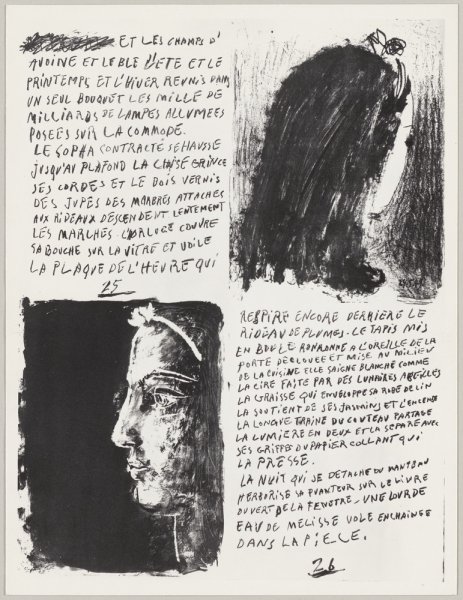 ET LES CHAMPS D'
AVOINE ET LE BLE L'ETE ET LE
PRINTEMPS ET L'HIVER REUNIS DANS
UN SEUL BOUQUET LES MILLE DE
MILLIARDS DE LAMPES ALLUMEES
POSEES SUR LA COMMODE.
LE SOPHA CONTRACTÉ SE HAUSSE
JUSQU'AU PLAFOND LA CHAISE GRINCE
SES CORDES ET LE BOIS VERNIS
DES JUPES DES MARBRES ATTACHES
AUX RIDEAUX DESCENDENT LENTEMENT
LES MARCHES. L'ORLOGE COUVRE
SA BOUCHE SUR LA VITRE ET VOILE
LA PLAQUE DE L'HEURE QUI
25
RESPIRE ENCORE DERRIERE LE
RIDEAU DE PLUMES. LE TAPIS MIS
EN BOULE RONRONNE A L'OREILLE DE LA
PORTE DECLOUEE ET MISE AU MILIEU
DE LA CUISINE ELLE SAIGNE BLANCHE COMME
LA CIRE FAITE PAR DES LUNAIRES ABEILLES
LA GRAISSE QUI ENVELOPPE SA ROBE DE LIN
LA SOUTIENT DE SES JASMINS ET L'ENCENS
LA LONGUE TRAINE DU COUTEAU PARTAGE
LA LUMIERE EN DEUX ET LA SEPARE AVEC
SES GRIFFES DU PAPIER COLLANT QUI
LA PRESSE.
LA NUIT QUI SE DETACHE DU MANTEAU
HERBORISE SA PUANTEUR SUR LE LIVRE
OUVERT DE LA FENETRE - UNE LOURDE
EAU DE MELISSE VOLE ENCHAINEE
DANS LA PIECE.
26